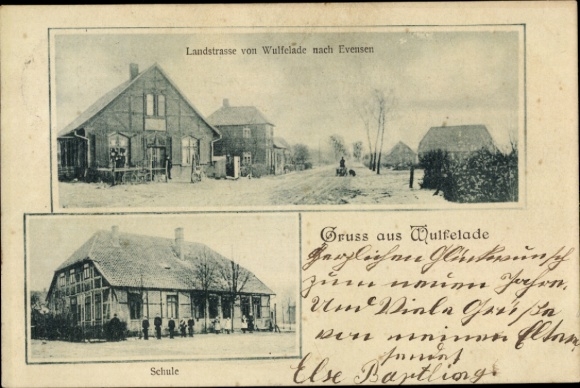 Landstrasse von Wulfelade nach Evensen
Gruss aus Wulfelade
Herzlichen Glückwunsch
zum neuen Jahre.
Und Viele Grüße
von meinen Eltern
sendet
Else Bartling.
Schule